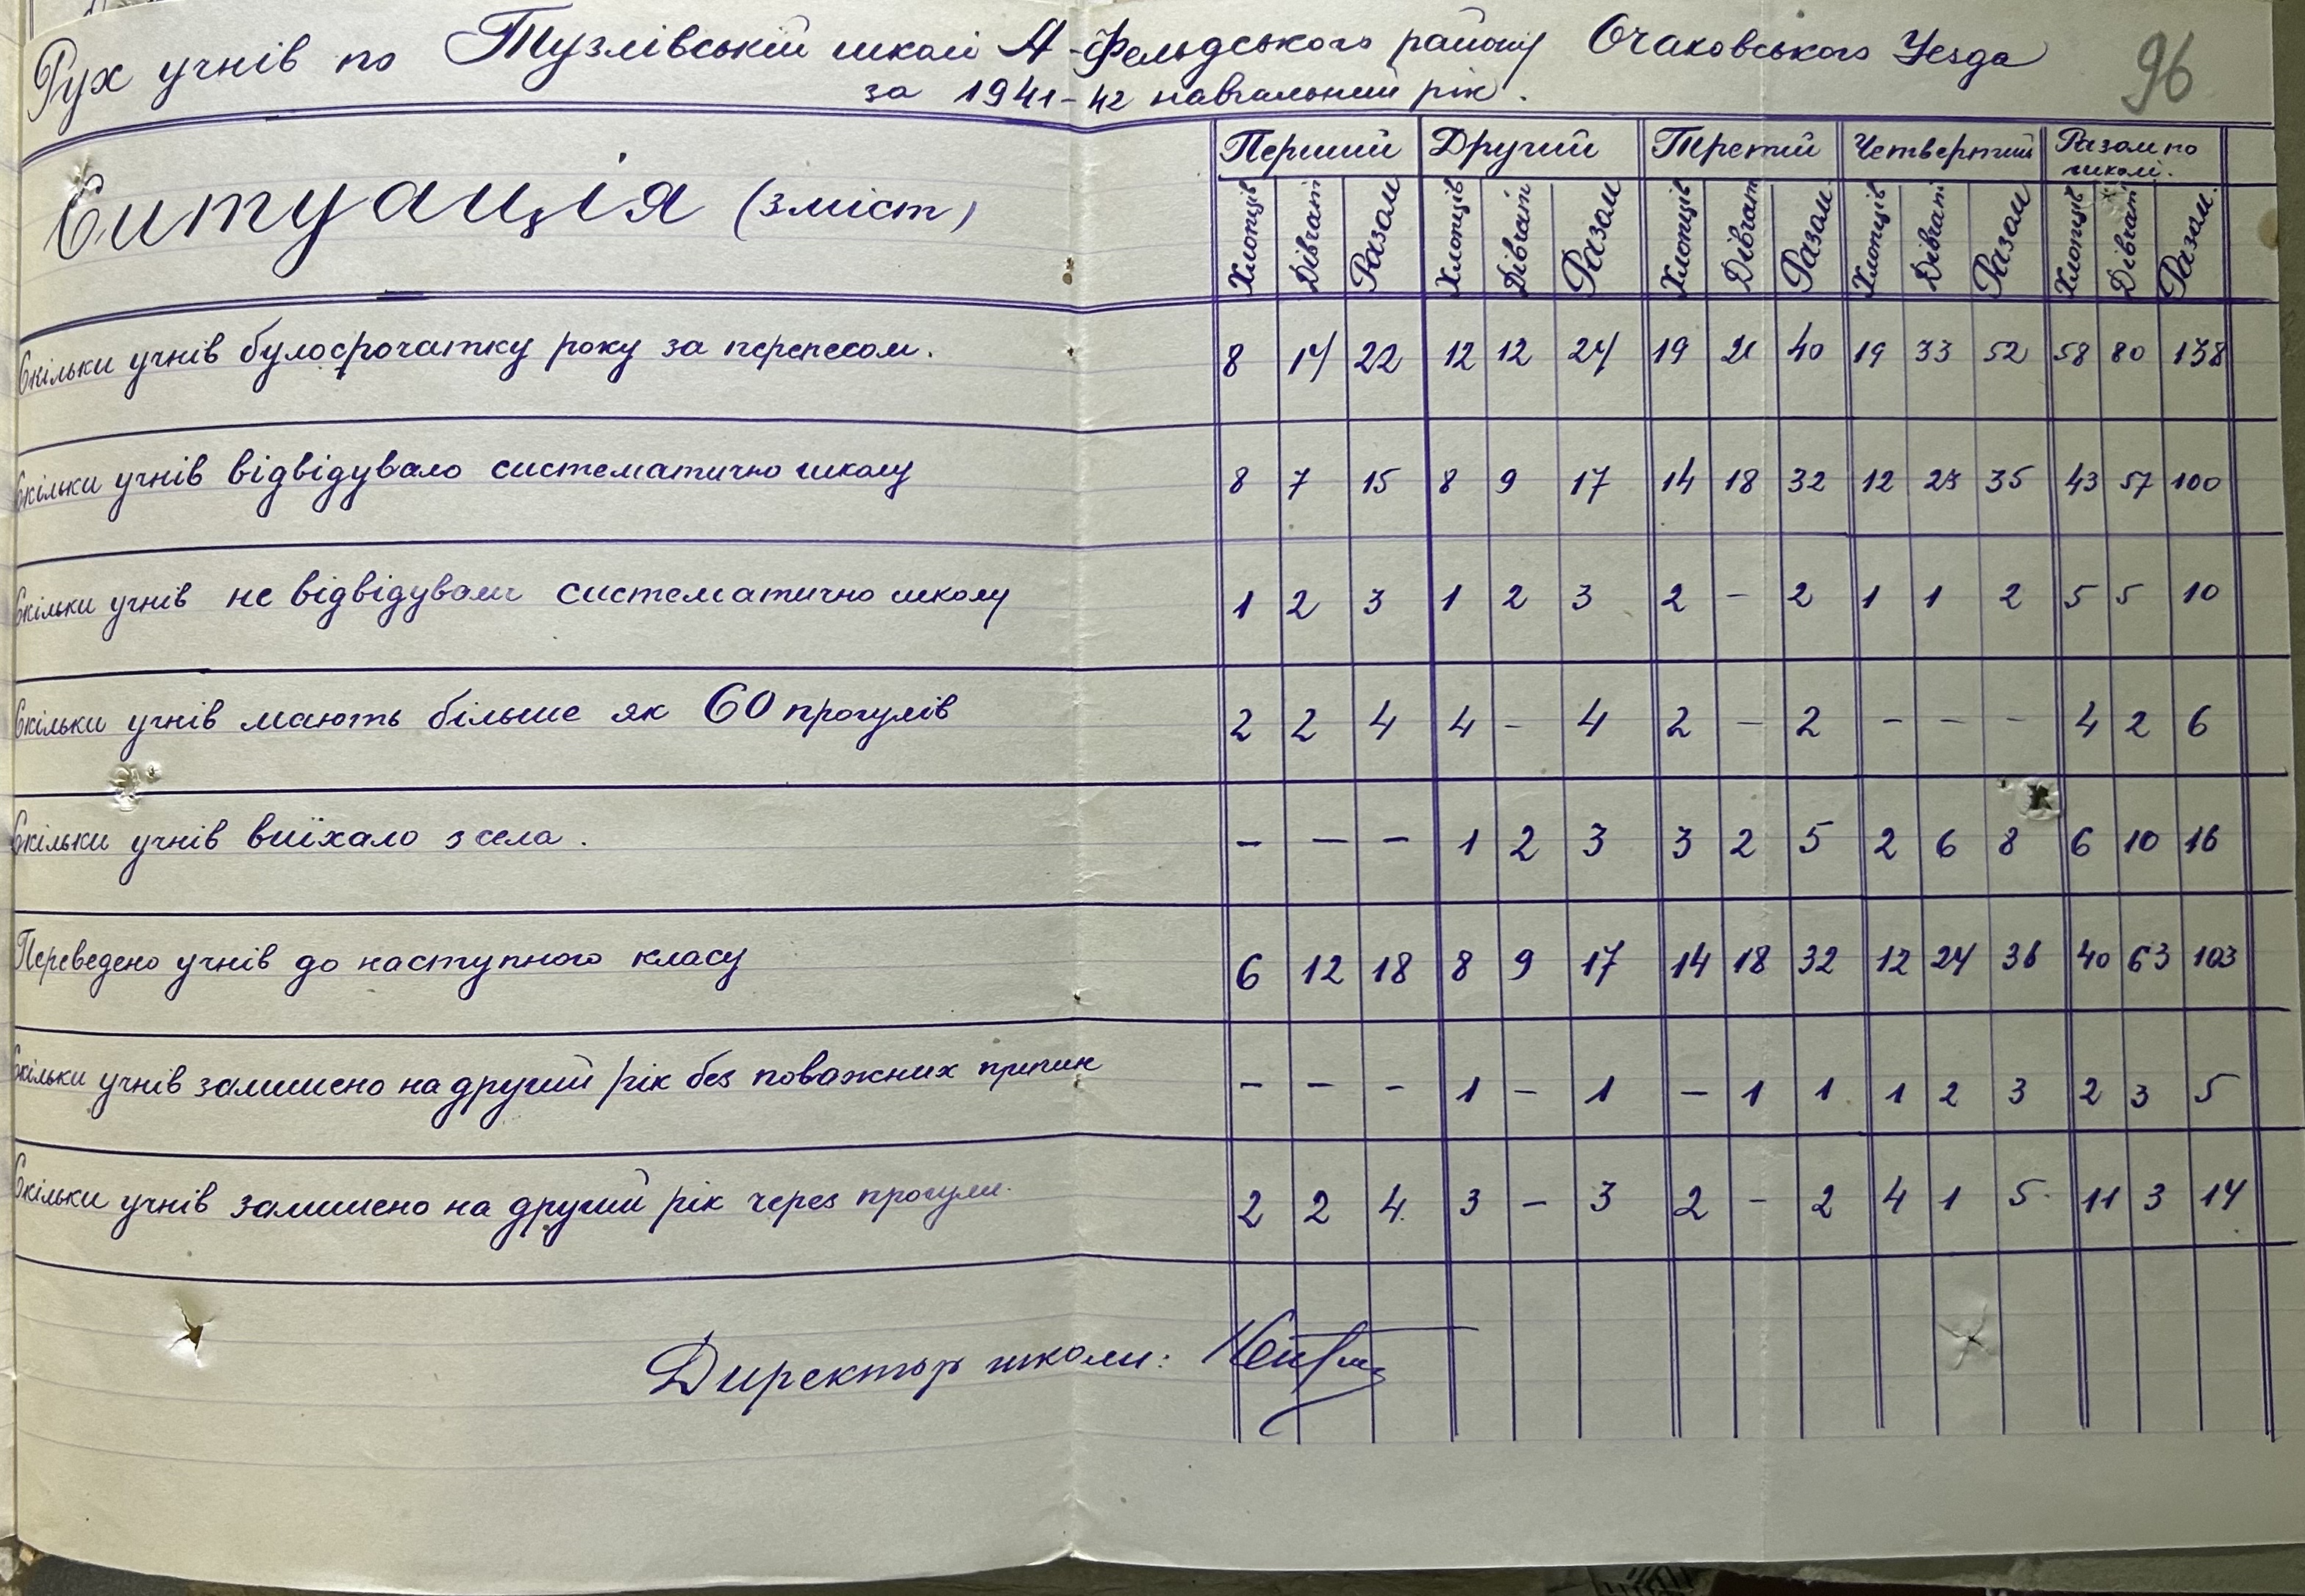 Рух учнів по Тузлівській школі А-Фельдського району Очаковського Уезда
96
за 1941-42 навчальний рік.
Ситуація (зміст)
Перший Другий Третій Четвертий Разом по школі.
Хлопців Дівчат Разом Хлопців Дівчат Разом Хлопців Дівчат Разом Хлопців Дівчат Разом Хлопців Дівчат Разом.
Скільки учнів було спочатку року за переписом. 8 14 22 12 12 24 19 21 40 19 33 52 58 80 138
Скільки учнів відвідувало систематично школу 8 7 15 8 9 17 14 18 32 12 23 35 43 57 100
Скільки учнів не відвідували систематично школу 1 2 3 1 2 3 2 - 2 1 1 2 5 5 10
Скільки учнів мають більше як 60 прогулів 2 2 4 4 - 4 2 - 2 - - - 4 2 6
Скільки учнів виїхало з села. - - - 1 2 3 3 2 5 2 6 8 6 10 16
Переведено учнів до наступного класу 6 12 18 8 9 17 14 18 32 12 24 36 40 63 103
Скільки учнів залишено на другий рік без поважних причин - - - 1 - 1 - 1 1 1 2 3 2 3 5
Скільки учнів залишено на другий рік через прогули. 2 2 4 3 - 3 2 - 2 4 1 5 11 3 14
Директор школи: